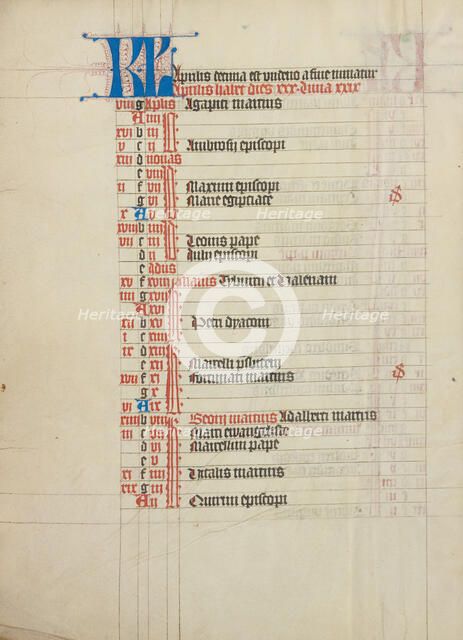 KL Aprilis decima est undeno a fine minatur
Aprilis habet dies xxx · luna xxix
viii g Aplis Agapiti martiris
A iiii
xvi b iii
v c ii Ambrosii episcopi
xiii d nonas
e viii
ii f vii Maximi episcopi
g vi Marie egiptiace
x A v
xviii b iiii
vii c iii Leonis pape
d ii Iulii episcopi
e idus
xv f xviii maius Tyburtii et Valeriani
iiii g xvii
A xvi
xii b xv Petri dyaconi
i c xiiii
d xiii
ix
e xii Marcelli
f xi Fortunati martiris
xvii
g x
vi A ix
xiiii b viii Georii martiris Adalberti martiris
iii c vii Marci ewangeliste
d vi Marcellini pape
e v
xi f iiii Vitalis martiris
xix g iii
A ii Quirini episcopi
Heritage Heritage
Heritage Heritage Heritage
Heritage Heritage